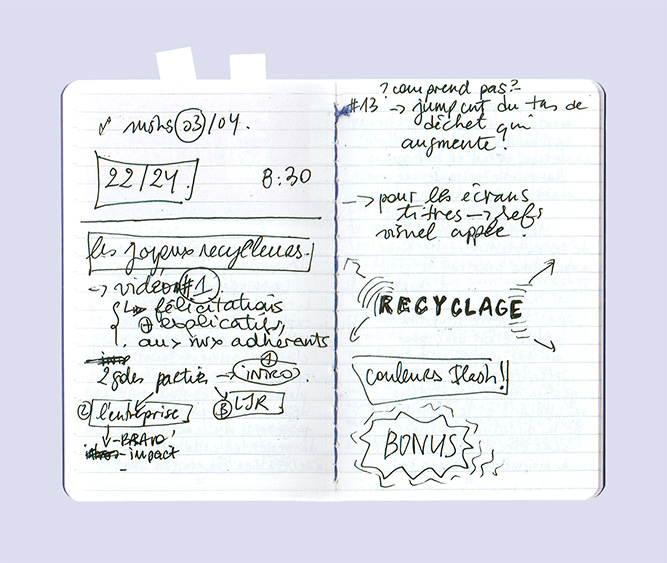 ✓ mois 03/04.
22/24. 8:30
les joyeux recycleurs.
-> vidéo #1
↳ félicitations
⊕ explicatifs,
aux nvx adhérents
2 gdes parties -> ① INTRO.
② l'entreprise ③ LJR
↳ BRAVO
- impact
? comprend pas?
#13 -> jump cut du tas de
déchet qui
augmente !
-> pour les écrans
titres -> refs
visuel apple !
RECYCLAGE
couleurs flash !!
BONUS